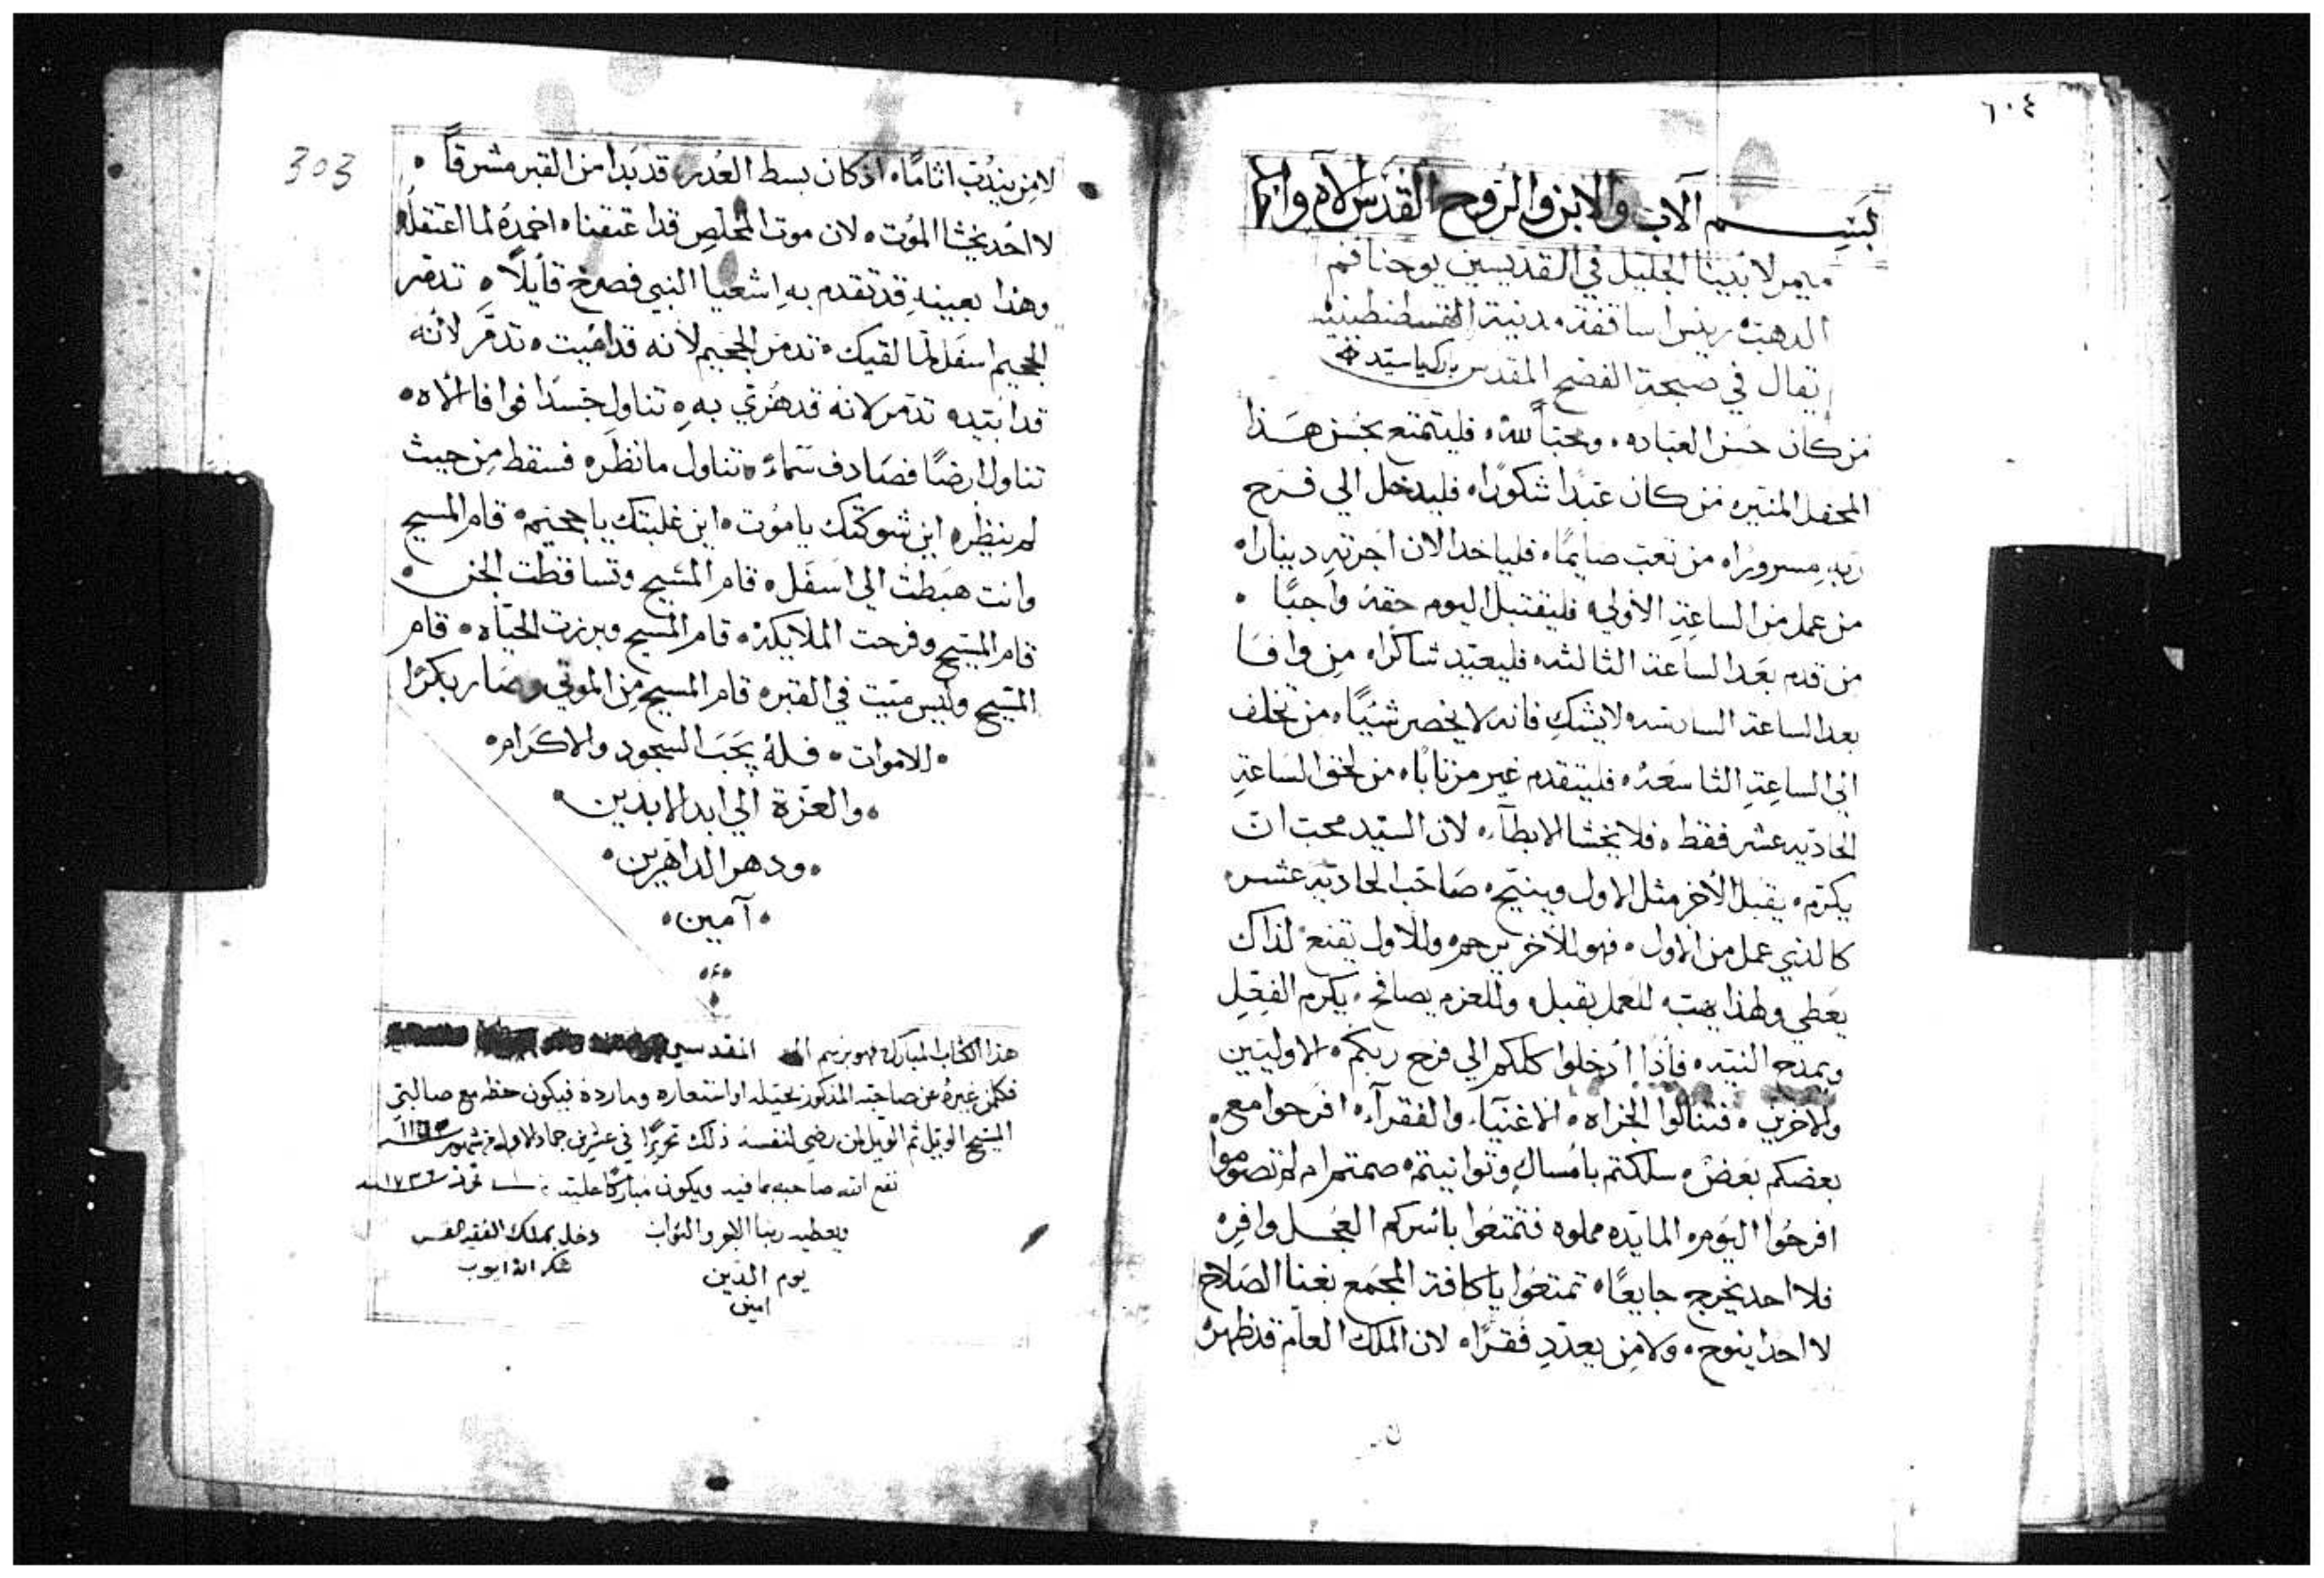 ٦٠٤
بسم الآب والابن والروح القدس الاله واحد
ميمر لابينا الجليل في القديسين يوحنا فم
الدهب ريس اساقفة مدنية القسطنطنيه
تقال في صبيحة الفصح المقدس بارك يا سيد
من كان حسن العباده ومحباً لله فليتمتع بحسن هذا
المحفل المنيره من كان عبدًا شكورًا فليدخل الي فرح
ربه مسرورًا من تعب صايمًا فلياخد الان اجرته دينارًا
من عمل من الساعة الأولي فليقتبل اليوم حقه واجبًا
من قدم بعد الساعة الثالثه فليعيد شاكرًا من وافا
بعد الساعة السادسه لا يشك فانه لا يخصر شيًا من تخلف
الي الساعة التاسعه فليتقدم غير مرتابًا من لحق الساعة
الحاديه عشر فقط فلا يخشا الابطآء لان السيد محب ان
يكرم يقبل الأخر مثل الاول وينيح صاحب الحادية عشر
كالذي عمل من الاول فهو للاخر يرحم وللاول يقنع لذاك
يعطي ولهذا يهب للعمل يقبل وللعزم يصافح يكرم الفعل
ويمدح النيه فاذا ادخلوا كلكم الي فرح ربكم الاوليين
والاخرين فتنالوا الجزاه الاغنيآء والفقرآء افرحوا مع
بعضكم بعض سلكتم بامساك وتوانيتم صمتم ام لم تصوموا
افرحوا اليوم المايده مملوه فتمتعوا باسركم العجل وافر
فلا احد يخرج جايعًا تمتعوا يا كافة المجمع بغنا الصلاح
لا احد ينوح ولا من يعدد فقرًا لان الملك العام قد ظهر
303
لا من يندب اثامًا اذ كان بسط العدر قد بدا من القبر مشرقاً
لا احد يخشا الموت لان موت المخلص قد اعتقنا اخمده لما اعتقله
وهذا بعينه قد تقدم به اشعيا النبي فصرخ قايلاً تدمر
الجحيم اسفل لما لقيك تدمر الجحيم لانه قد اميت تدمر لانه
قد ابتيد تدمر لانه قد هزي به تناول جسدًا فوافا الاه
تناول ارضًا فصادف سماء تناول ما نظره فسقط من حيث
لم ينظره اين شوكتك يا موت اين غلبتك يا جحيم قام المسيح
وانت هبطت الي اسفل قام المسيح وتساقطت الجن
قام المسيح وفرحت الملايكه قام المسيح وبرزت الحياه قام
المسيح وليس ميت في القبر قام المسيح من الموتي وصار بكرًا
للاموات فله يجب السجود والاكرام
والعزة الي ابد الابدين
ودهر الداهرين
آمين
هذا الكتاب المبارك هو برسم المقدسي
فكلمن غيره عن صاحبه المذكور بحيله او استعاره وما رده فيكون حظه مع صالبي
المسيح الويل ثم الويل لمن رضي لنفسه ذلك تحريرًا في عشرين جماد الاول من شهور
نفع الله صاحبه بما فيه ويكون مباركًا عليه
ويعطيه ربنا الاجر والثواب
يوم الدين
امين
دخل بملك الفقير القس
شكر الله ايوب